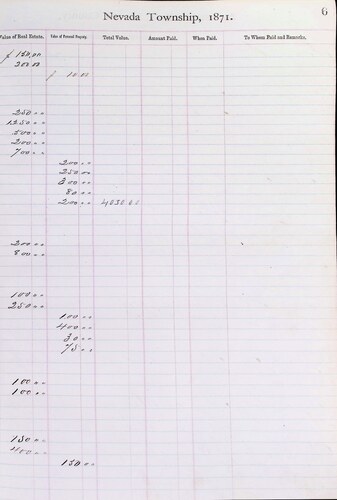 6
Nevada Township, 1871.
Value of Real Estate. Value of Personal Property. Total Value. Amount Paid. When Paid. To Whom Paid and Remarks.
10.00
250 00
1250 00
200 00
700 00
200 00
250 00
300 00
80 00
200 00 4030.00
200 00
800 00
100 00
250 00
100 00
400 00
30 00
75 00
100 00
100 00
150 00
400 00
150 00